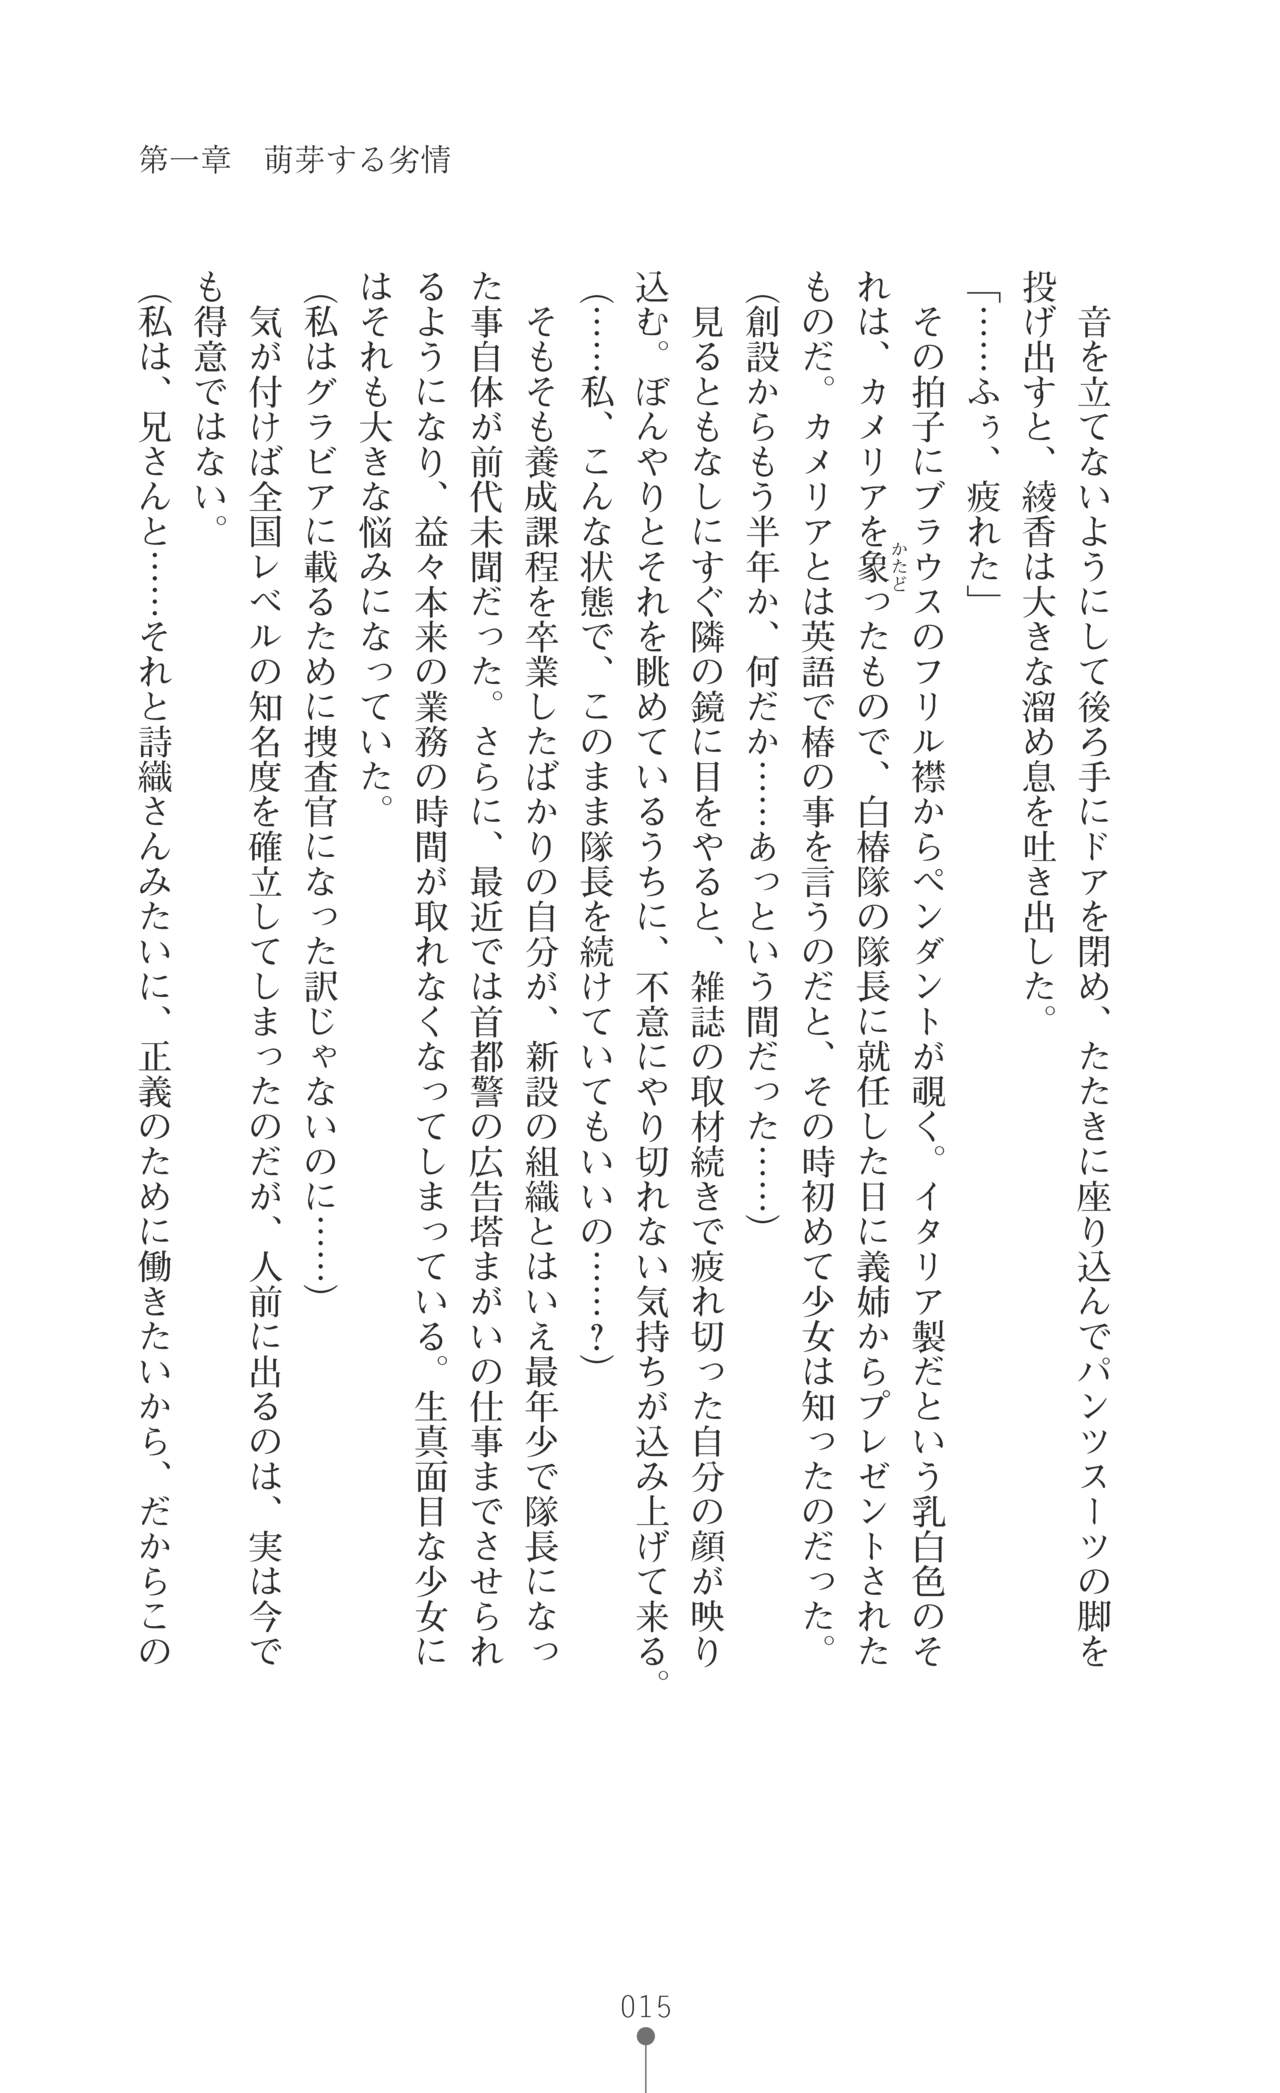 第一章　萌芽する劣情
　音を立てないようにして後ろ手にドアを閉め、たたきに座り込んでパンツスーツの脚を
投げ出すと、綾香は大きな溜め息を吐き出した。
「……ふぅ、疲れた」
　その拍子にブラウスのフリル襟からペンダントが覗く。イタリア製だという乳白色のそ
れは、カメリアを象ったもので、白椿隊の隊長に就任した日に義姉からプレゼントされた
かたど
ものだ。カメリアとは英語で椿の事を言うのだと、その時初めて少女は知ったのだった。
（創設からもう半年か、何だか……あっという間だった……）
　見るともなしにすぐ隣の鏡に目をやると、雑誌の取材続きで疲れ切った自分の顔が映り
込む。ぼんやりとそれを眺めているうちに、不意にやり切れない気持ちが込み上げて来る。
（……私、こんな状態で、このまま隊長を続けていてもいいの……？）
　そもそも養成課程を卒業したばかりの自分が、新設の組織とはいえ最年少で隊長になっ
た事自体が前代未聞だった。さらに、最近では首都警の広告塔まがいの仕事までさせられ
るようになり、益々本来の業務の時間が取れなくなってしまっている。生真面目な少女に
はそれも大きな悩みになっていた。
（私はグラビアに載るために捜査官になった訳じゃないのに……）
　気が付けば全国レベルの知名度を確立してしまったのだが、人前に出るのは、実は今で
も得意ではない。
（私は、兄さんと……それと詩織さんみたいに、正義のために働きたいから、だからこの
015